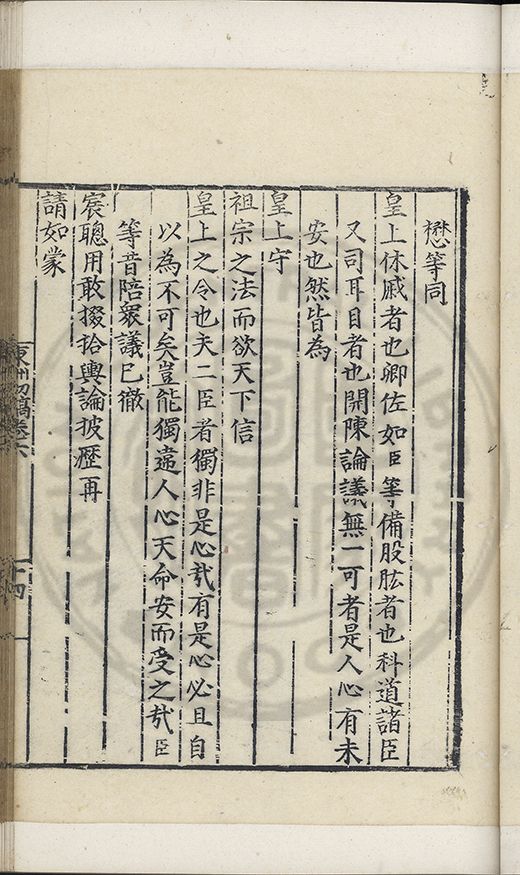 懋等同
皇上休戚者也卿佐如臣等備股肱者也科道諸臣
又司耳目者也開陳論議無一可者是人心有未
安也然皆為
皇上守
祖宗之法而欲天下信
皇上之令也夫二臣者獨非是心㢤有是心必且自
以為不可矣豈能獨違人心天命安而受之㢤臣
等昔陪衆議已徹
宸聰用敢掇拾輿論披瀝再
請如蒙
東洲初稿卷六
十四